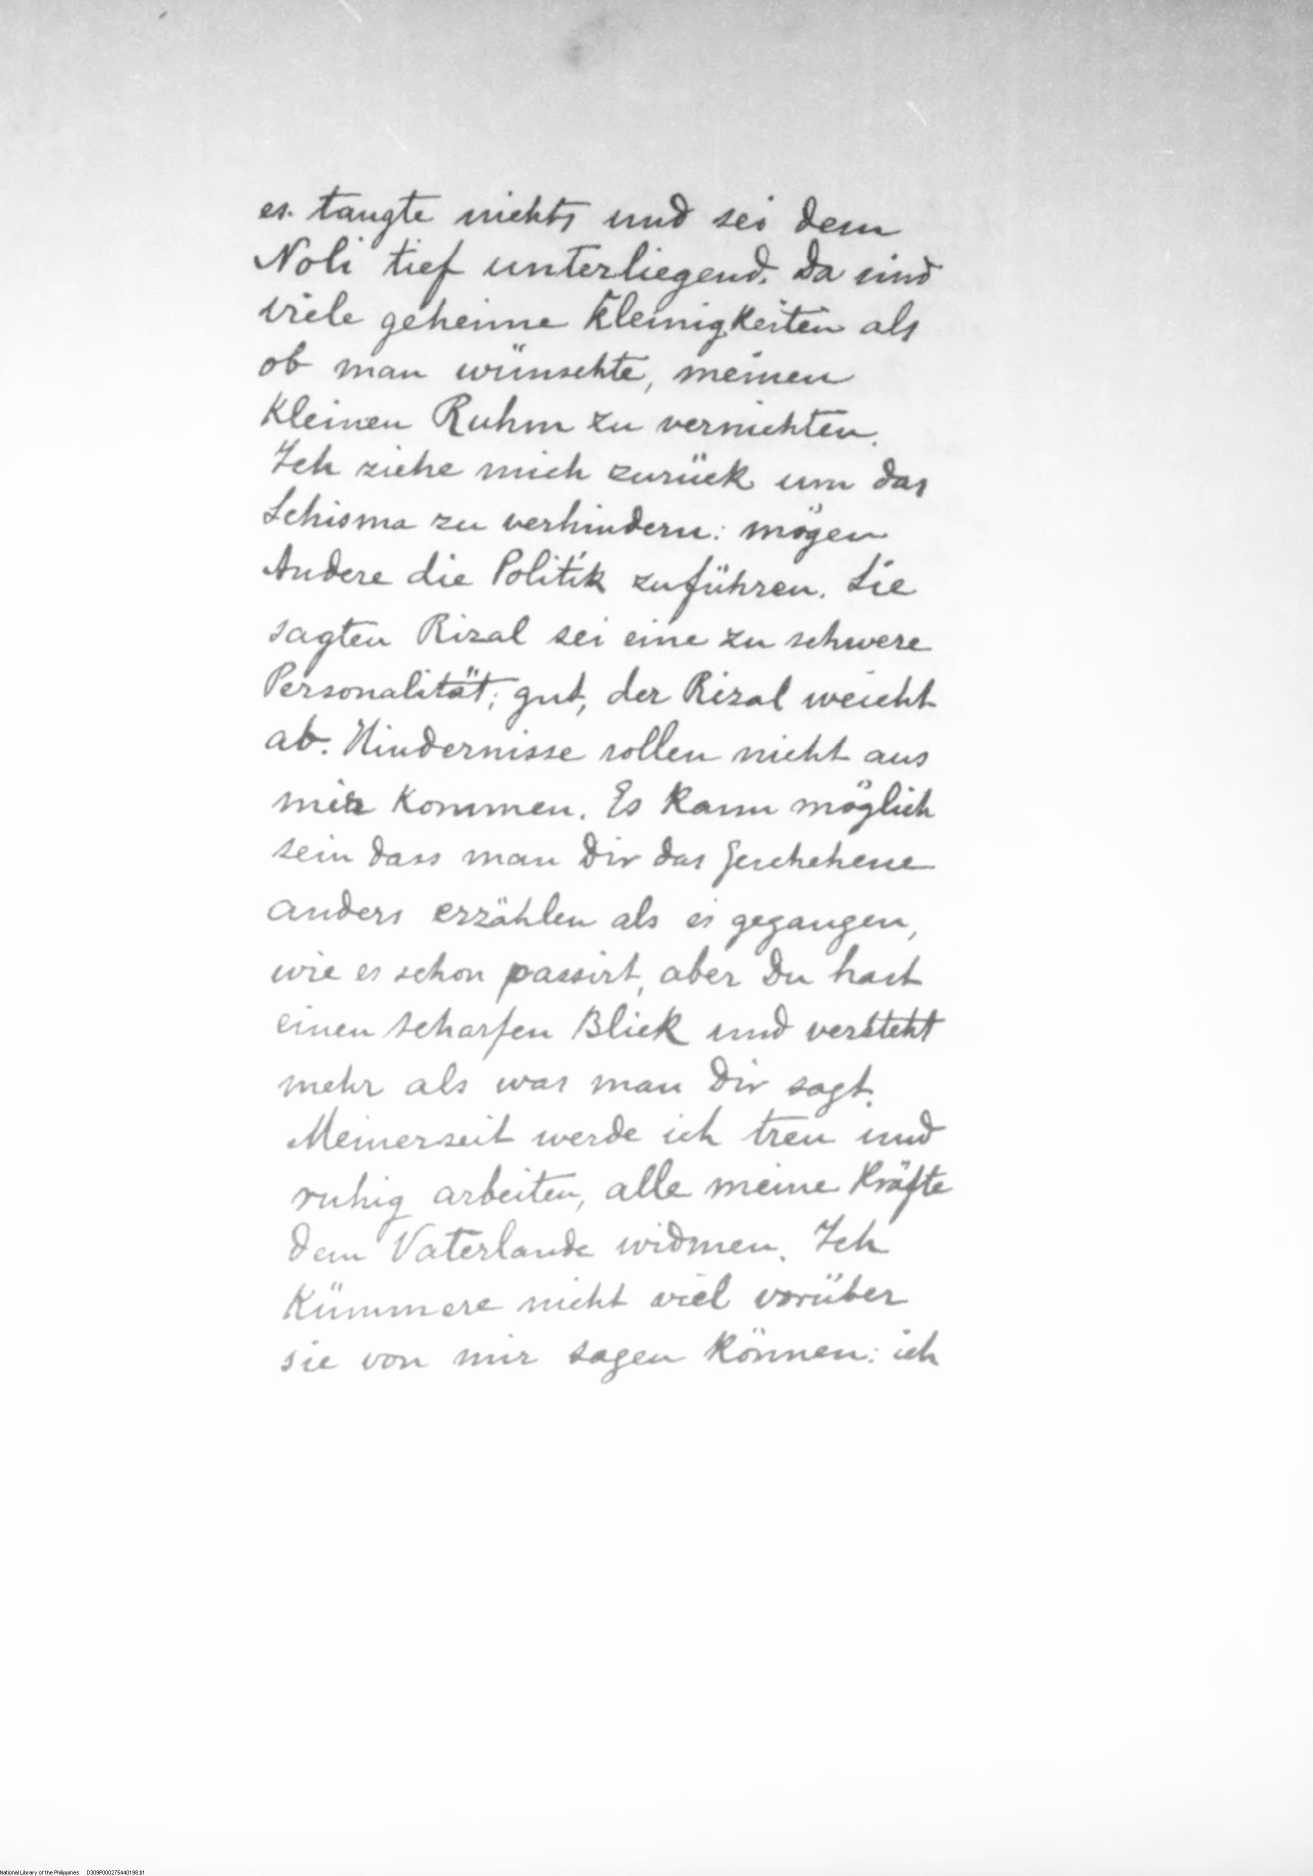 es. taugte nichts und sei dem
Noli tief unterliegend. Da sind
viele geheime Kleinigkeiten als
ob man wünschte, meinen
kleinen Ruhm zu vernichten.
Ich ziehe mich zurück um das
Schisma zu verhindern: mögen
Andere die Politik zuführen. Sie
sagten Rizal sei eine zu schwere
Personalität; gut, der Rizal weicht
ab. Hindernisse sollen nicht aus
mir kommen. Es kann möglich
sein dass man Dir das Geschehene
anders erzählen als es gegangen,
wie es schon passirt, aber Du hast
einen scharfen Blick und versteht
mehr als was man Dir sagt.
Meinerseit werde ich treu und
ruhig arbeiten, alle meine Kräfte
dem Vaterlande widmen. Ich
kümmere nicht viel vorüber
sie von mir sagen können: ich
National Library of the Philippines